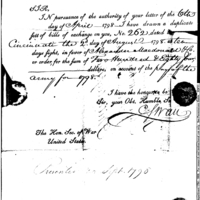 SIR,
IN pursuance of the authority of your letter of the 6th
day of April 1798 I have drawn a duplicate
set of bills of exchange on you, No. 262 dated
Cincinnati the 2d day of August 1798
days sight, in favor of
or order for the sum of Two Hundred & Eighty
dollars, on account of the pay of the
army for 1798.
I have the honor to be,
Sir, your Obt. Humble St.
C Swan
The Hon. Sec. of War
United States.
Sept. 1798